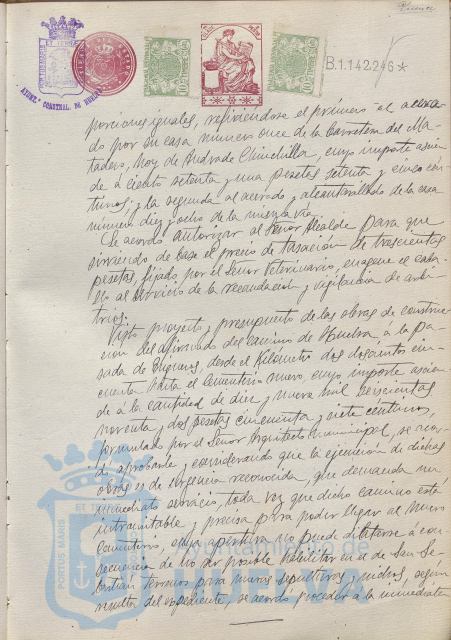 B.1.142.246*
porciones iguales, refiriéndose el primero al acerca-
do por su casa número once de la Carretera del Ma-
tadero, hoy de Andrade Chinchilla, cuyo importe ascien-
de á ciento setenta y una pesetas setenta y cinco cén-
timos; y la segunda al acerado y alcantarillado de la casa
número diez y ocho de la misma vía.
Se acordó autorizar al Señor Alcalde para que
sirviendo de base el precio de tasación de trescientas
pesetas, fijado por el Señor Veterinario, enagene el caba-
llo al servicio de la recaudación y vigilancia de arbi-
trios.
Visto proyecto y presupuesto de las obras de construc-
cion del afirmado del camino de Huelva á la Pa-
sada de
desde el Kilómetro dos doscientos cin-
cuenta hasta el Cementerio nuevo, cuyo importe ascien-
de á la cantidad de diez y nueve mil seiscientas
noventa y dos pesetas cincuenta y siete centimos,
formulado por el Señor Arquitecto municipal, se acor-
dó aprobarle y considerando que la ejecución de dichas
obras es de urgencia reconocida, que demanda un
inmediato servicio, toda vez que dicho camino está
intransitable y precisa para poder llegar al nuevo
Cementerio, cuya apertura no puede dilatarse á con-
secuencia de no ser posible habilitar en el de San Se-
bastián terrenos para nuevas sepulturas y nichos, según
resulta del expediente, se acordó proceder á la inmediata
Ayuntamiento de
PORTUS MARIS